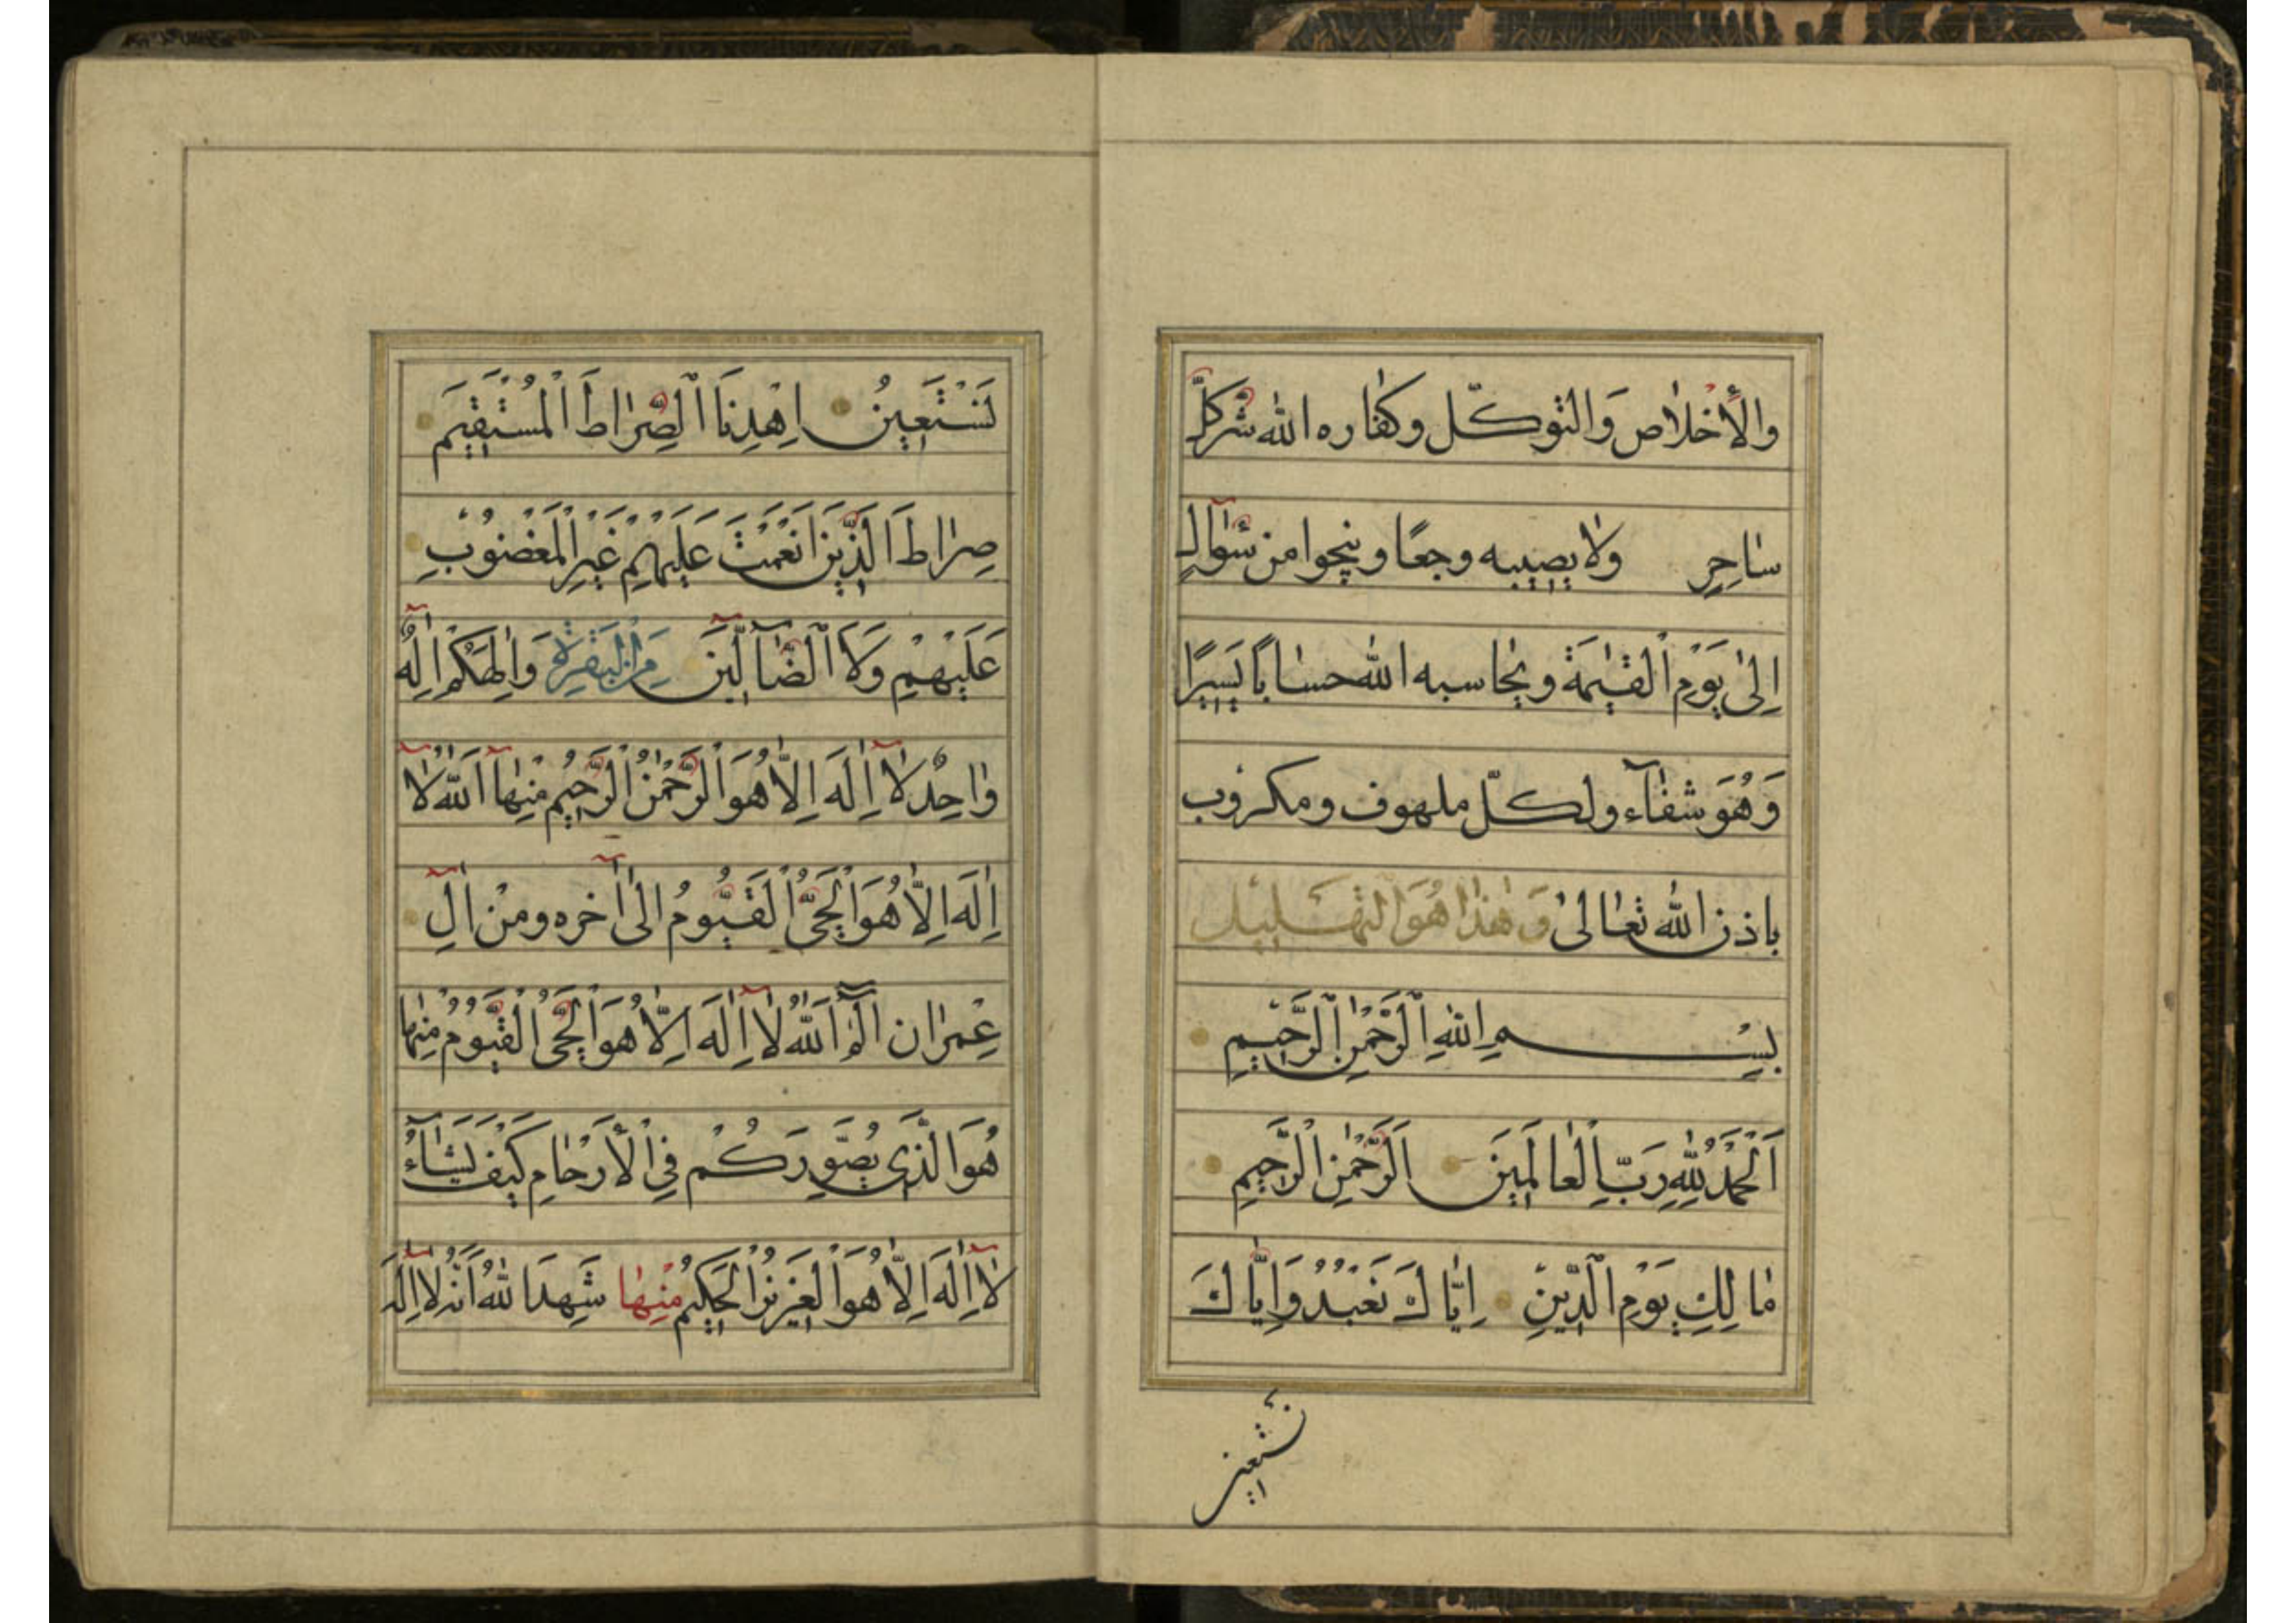 والأَخلاص وَالتوكّل وكفاره الله شرّ كلّ
ساحِرٍ ولا يصيبه وجعًا وينجوا من سؤال
اِلىٰ يَوْمِ الْقيٰمَة ويحاسبه الله حسابًا يَسيرًا
وَهُوَ شفآء ولكلّ ملهوف ومكروب
باذن الله تعالىٰ وَهٰذا هُوَ التهَليل
بِسْمِ اللهِ الرَّحْمٰنِ الرَّحيمِ
اَلْحَمْدُ لِلّٰهِ رَبِّ الْعالَمينَ اَلرَّحْمٰنِ الرَّحيمِ
مالِكِ يَوْمِ الدّينِ اِيّاكَ نَعْبُدُ وَاِيّاكَ
نَسْتَعين
نَسْتَعينُ اِهْدِنَا الصِّراطَ الْمُسْتَقيمَ
صِراطَ الَّذينَ اَنْعَمْتَ عَلَيْهِمْ غَيْرِ الْمَغْضُوبِ
عَلَيْهِمْ وَلَا الضّآلّينَ مِنَ الْبَقَرَةِ وَاِلٰهُكُمْ اِلٰهٌ
واحِدٌ لآ اِلٰهَ اِلّا هُوَ الرَّحْمٰنُ الرَّحيمُ مِنْهآ اَللهُ لآ
اِلٰهَ اِلّا هُوَ الْحَىُّ الْقَيُّومُ الىٰ آخره ومنْ آلِ
عِمْران الٓمٓ اَللهُ لآ اِلٰهَ اِلّا هُوَ الْحَىُّ الْقَيُّومُ مِنْها
هُوَ الَّذي يُصَوِّرُكُمْ فِي الْاَرْحامِ كَيْفَ يَشآءُ
لآ اِلٰهَ اِلّا هُوَ الْعَزيزُ الْحَكيمُ مِنْها شَهِدَ اللهُ اَنَّهُ لآ اِلٰهَ